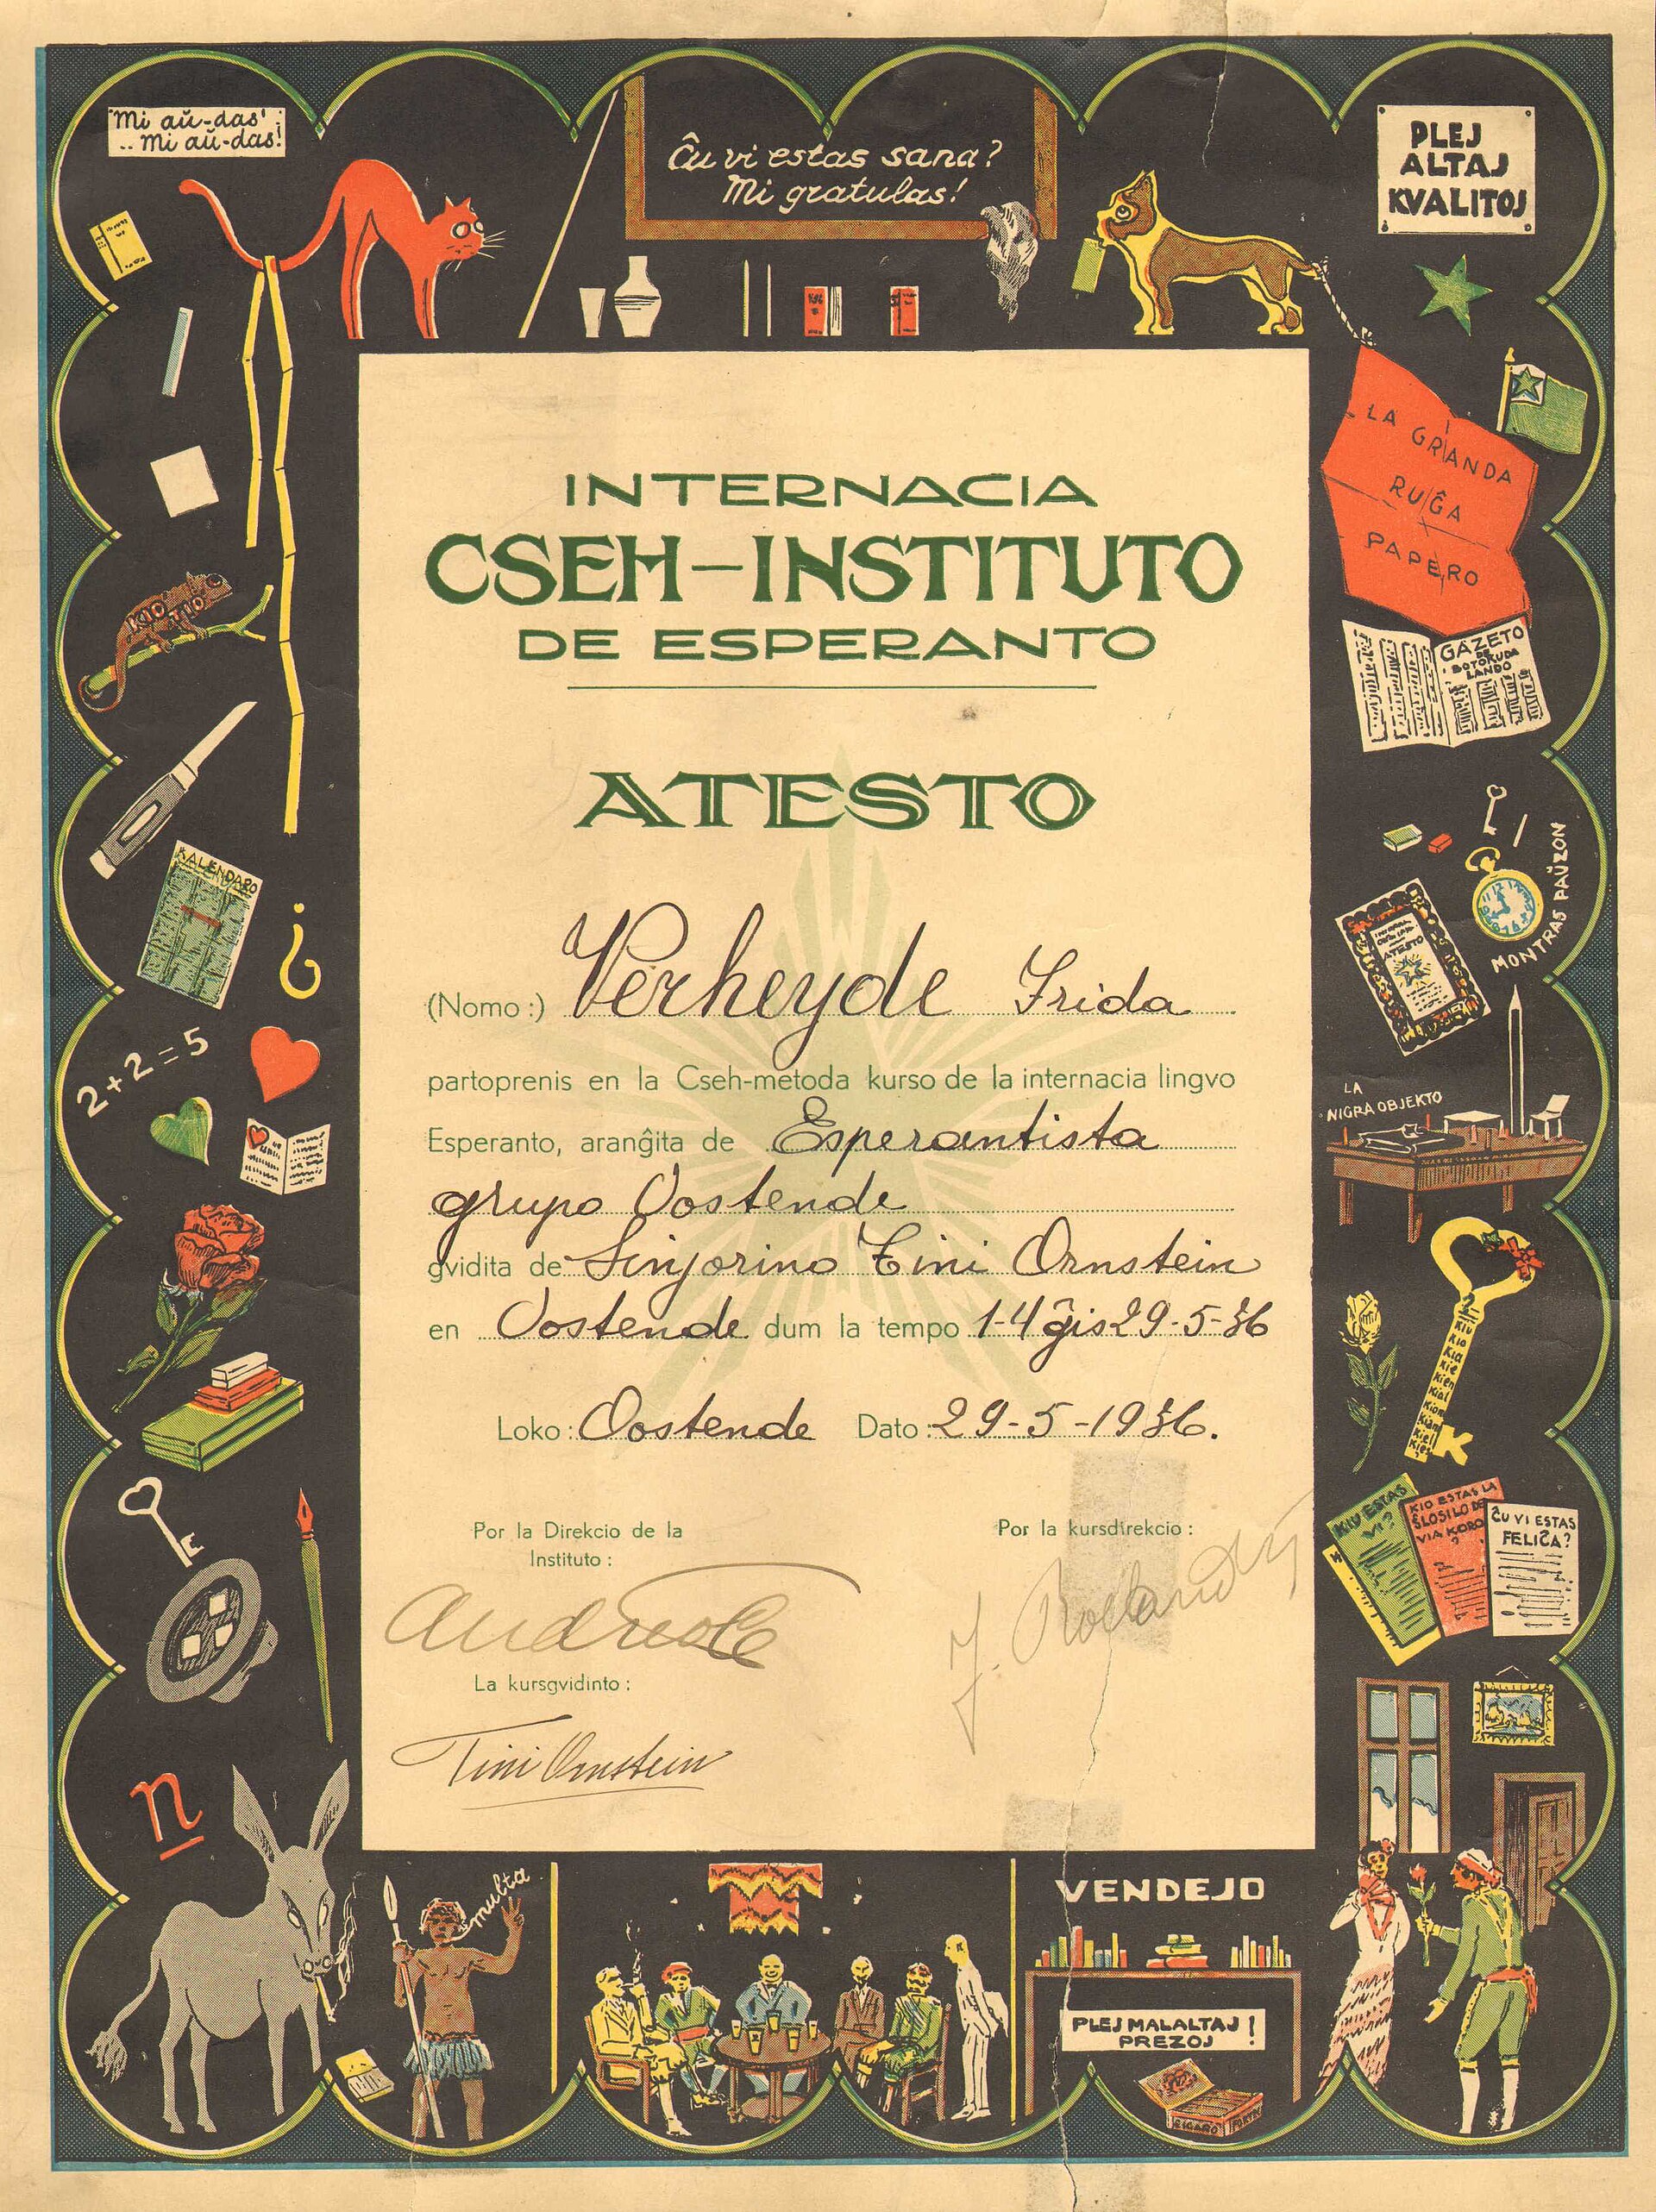 'Mi aŭ-das'
.. Mi aŭ-das!
Ĉu vi estas sana?
Mi gratulas!
PLEJ
ALTAJ
KVALITOJ
LA GRANDA
RUĜA
PAPERO
GAZETO
DE
BOTOKUDA
LANDO
KIO TIO
KALENDARO
2+2=5
MONTRAS PAŬZON
ATESTO
LA
NIGRA OBJEKTO
INTERNACIA
CSEH-INSTITUTO
DE ESPERANTO
ATESTO
(Nomo:) Verheyde Frida
partoprenis en la Cseh-metoda kurso de la internacia lingvo
Esperanto, aranĝita de Esperantista
grupo Oostende
gvidita de Sinjorino Tini Ornstein
en Oostende dum la tempo 1-4 ĝis 29-5-36
Loko: Oostende Dato: 29-5-1936.
Por la Direkcio de la
Instituto:
Por la kursdirekcio:
La kursgvidinto:
Tini Ornstein
Kiu
Kio
Kia
Kie
Kien
Kial
Kiom
Kiam
Kiel
Kies
?
KIU ESTAS
VI?
KIO ESTAS LA
ŜLOSILO DE
VIA KORO
?
ĈU VI ESTAS
FELIĈA?
n
multa
VENDEJO
PLEJ MALALTAJ !
PREZOJ
CIGARO